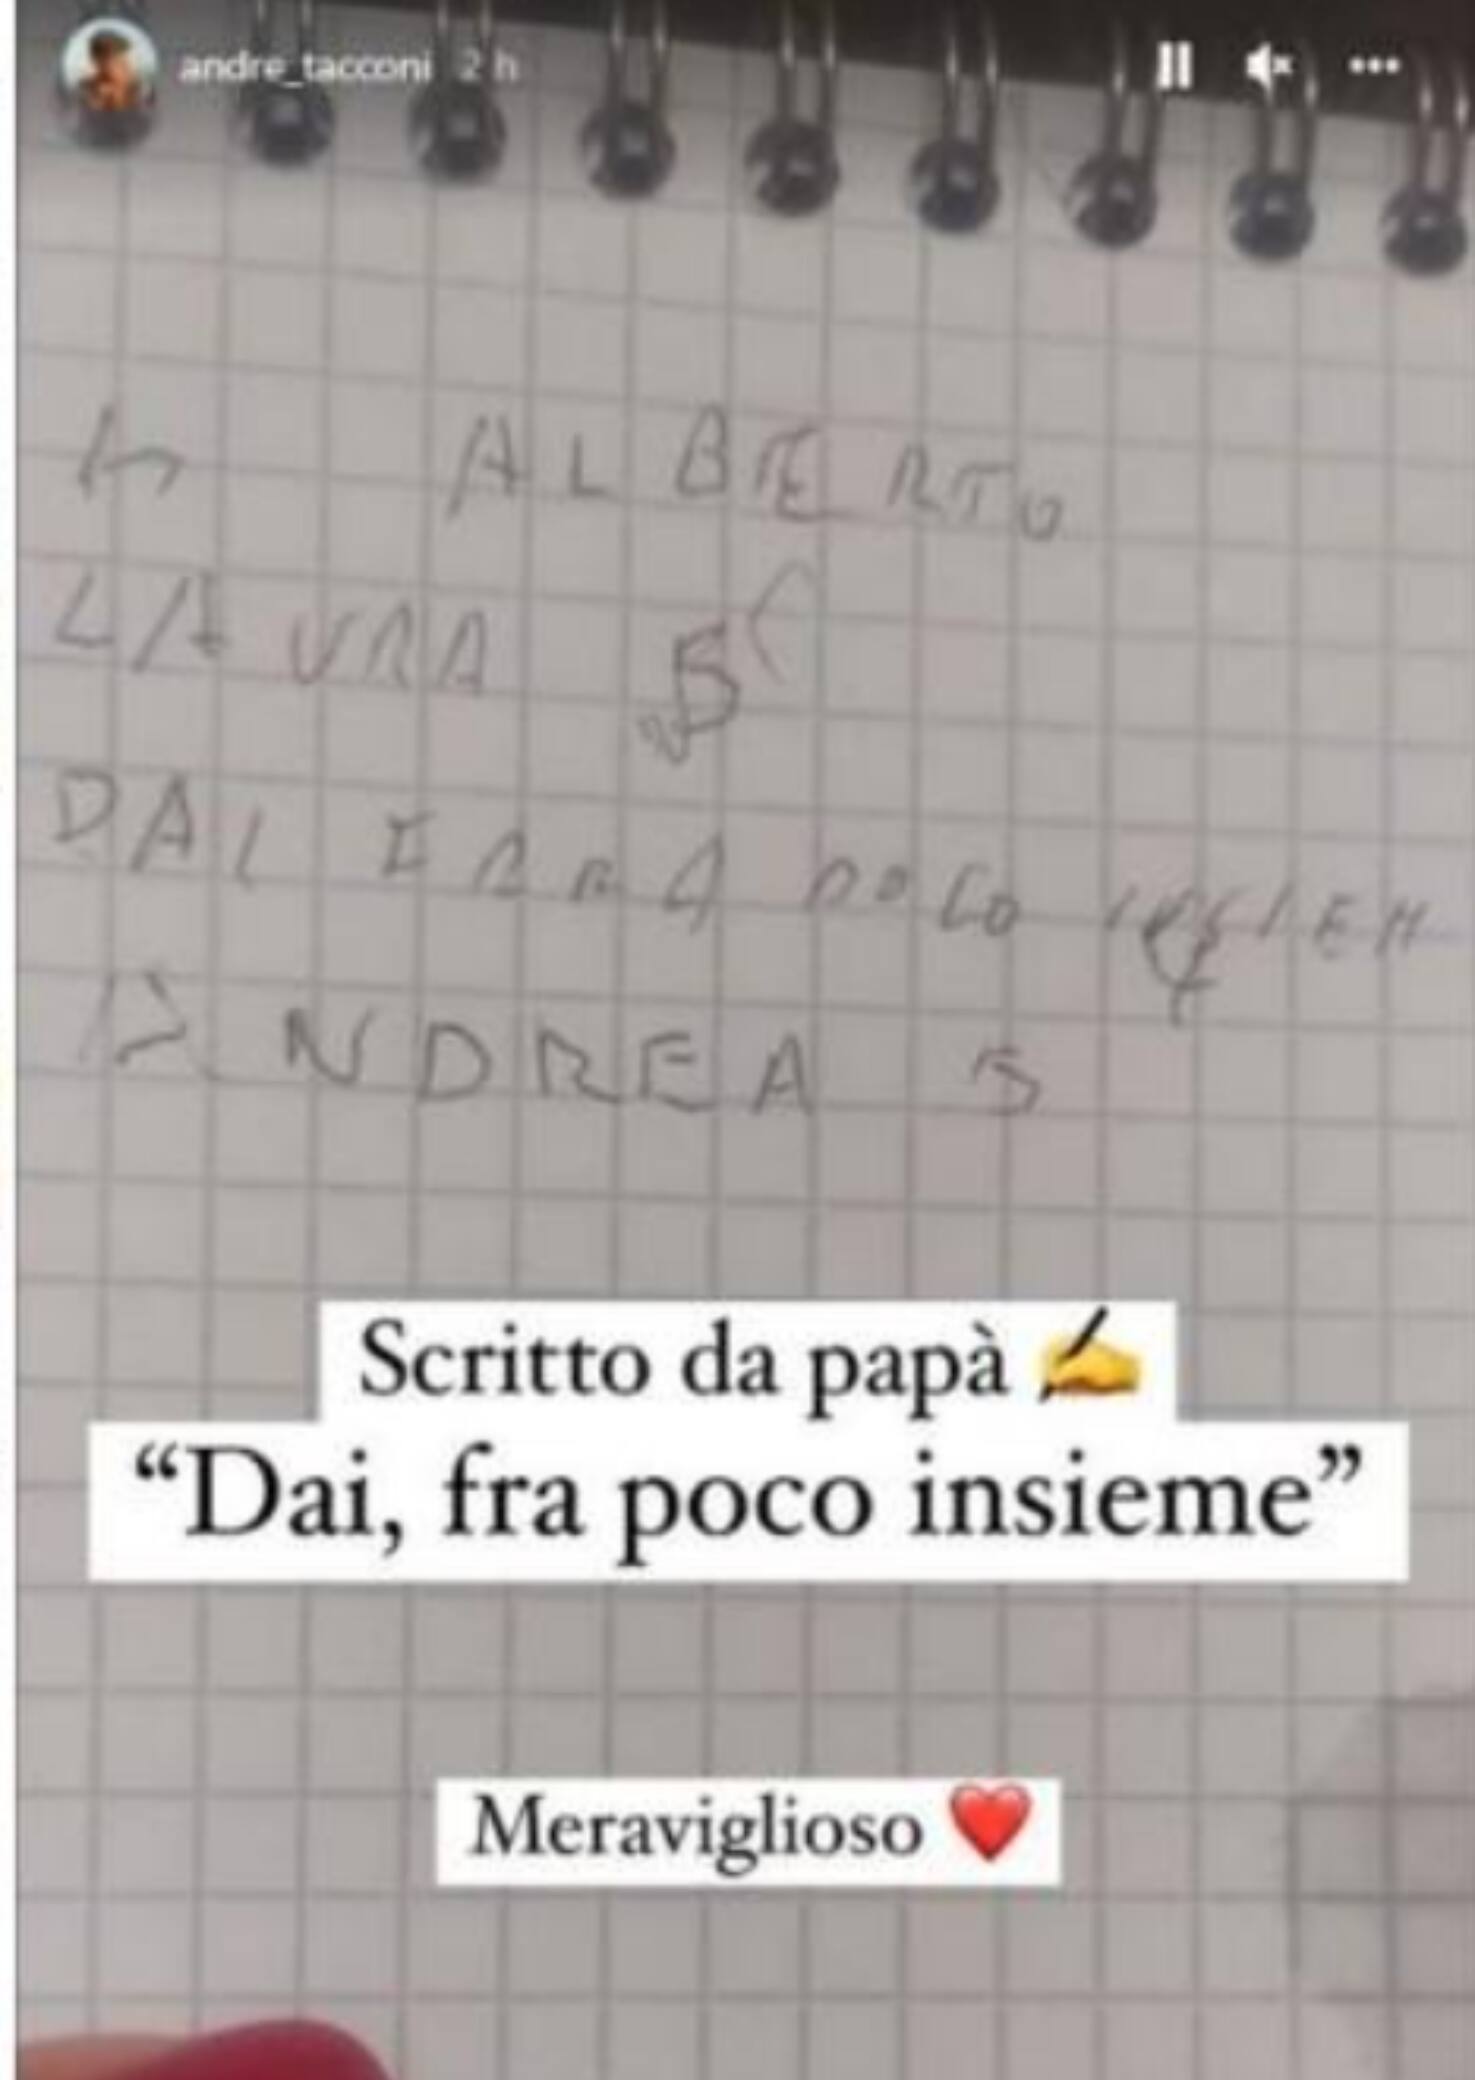 andre_tacconi 2 h
ALBERTO
LAURA
DAI POCO
ANDREA
Scritto da papà ✍️
“Dai, fra poco insieme”
Meraviglioso ❤️